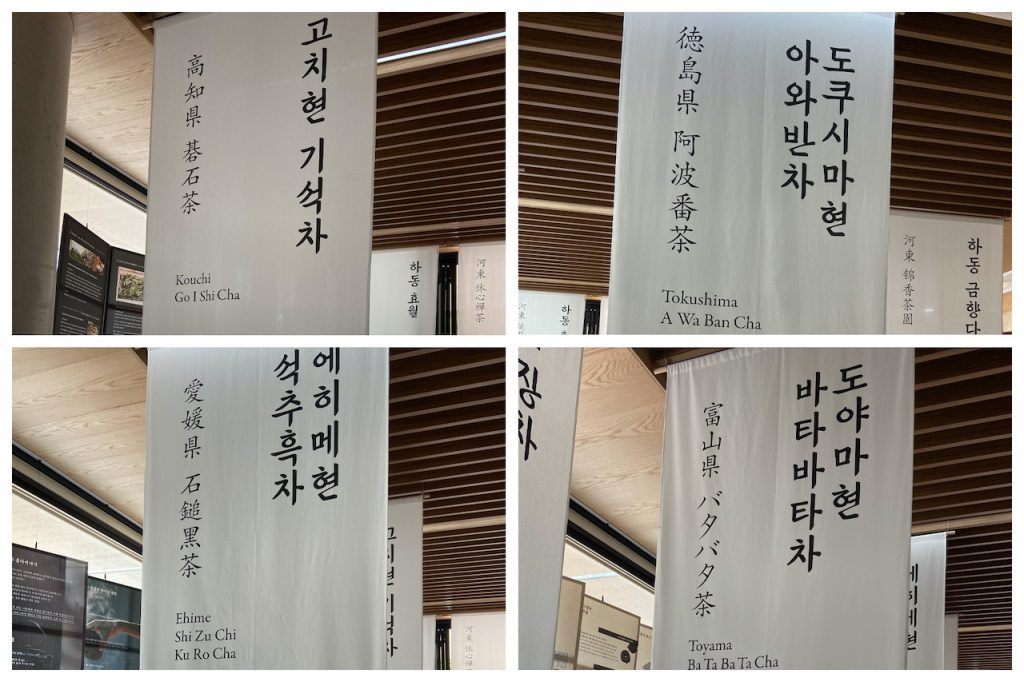 고치현 기석차
高知県 碁石茶
Kouchi
Go I Shi Cha
하동 효월
河東 休心禅茶
도쿠시마현
아와반차
徳島県 阿波番茶
Tokushima
A Wa Ban Cha
하동 금향다
河東 錦香茶園
하동
에히메현
석추흑차
愛媛県 石鎚黑茶
Ehime
Shi Zu Chi
Ku Ro Cha
고치현 기석차
도야마현
바타바타차
富山県 バタバタ茶
Toyama
Ba Ta Ba Ta Cha
징차
에히메현